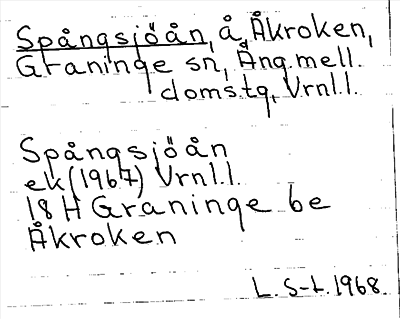 Spångsjöån, å, Åkroken,
Graninge sn, Ång.mell.
domstg, Vrnl.l.
Spångsjöån
ek (1967) Vrnl.l.
18 H Graninge 6e
Åkroken
L. S-t. 1968.